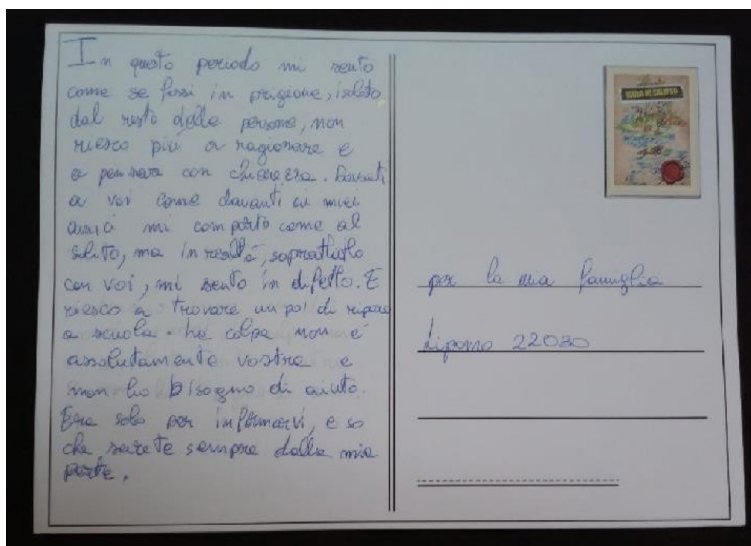 In questo periodo mi sento
come se fossi in prigione, isolato
dal resto delle persone, non
riesco più a ragionare e
a pensare con chiarezza. Davanti
a voi come davanti ai miei
amici mi comporto come al
solito, ma in realtà, soprattutto
con voi, mi sento in difetto. E
riesco a trovare un po' di riparo
a scuola. La colpa non è
assolutamente vostra e
non ho bisogno di aiuto.
Era solo per informarvi, e so
che sarete sempre dalla mia
parte.
ISOLA DI CALIPSO
per la mia famiglia
Lipomo 22030